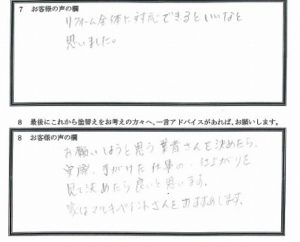 7 お客様の声の欄
リフォーム全体に対応できるといいなと
思いました。
8 最後にこれから塗替えをお考えの方々へ、一言アドバイスがあれば、お願いします。
8 お客様の声の欄
お願いしようと思う業者さんを決めたら、
実際、手がけた仕事の、仕上がりを
見て決めたら良いと思います。
マルキペイントさんをおすすめします。